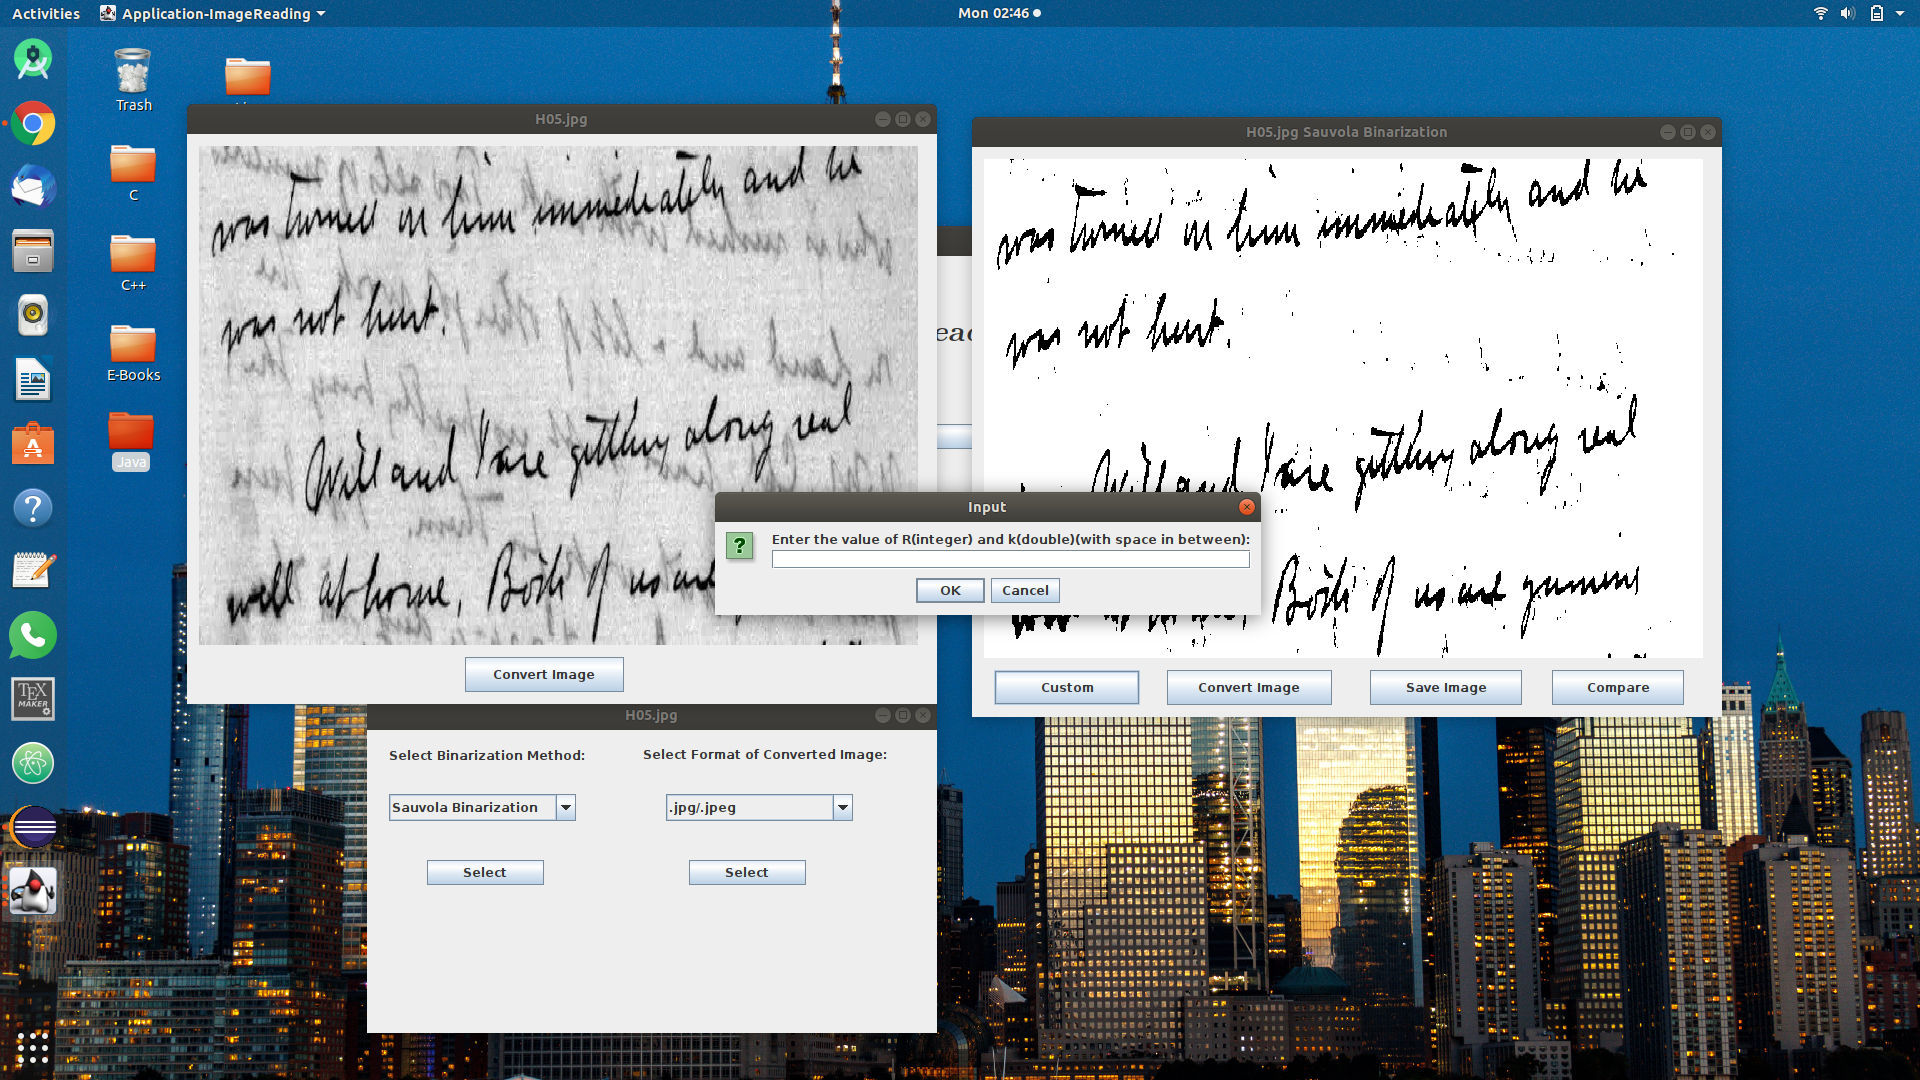 Activities
Application-ImageReading
Mon 02:46
Trash
C
C++
E-Books
Java
H05.jpg
was turned in him immediately and he
was not hurt.
Will and I are getting along real
well at home. Both of us are
Convert Image
eac
H05.jpg Sauvola Binarization
was turned in him immediately and he
was not hurt.
Will and I are getting along real
Both of us are gunning
Custom
Convert Image
Save Image
Compare
Input
Enter the value of R(integer) and k(double)(with space in between):
OK
Cancel
H05.jpg
Select Binarization Method:
Select Format of Converted Image:
Sauvola Binarization
.jpg/.jpeg
Select
Select
TEX
MAKER